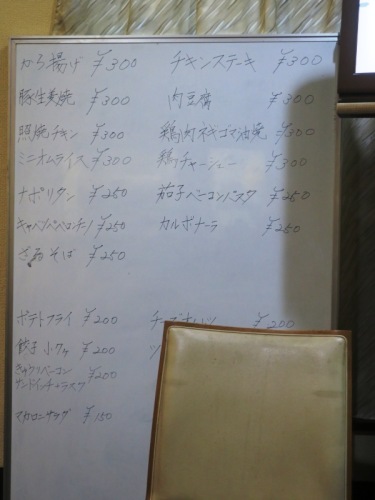 から揚げ ¥300 チキンステーキ ¥300
豚生姜焼 ¥300 肉豆腐 ¥300
照焼チキン ¥300 鶏肉ネギゴマ油焼 ¥300
ミニオムライス ¥300 鶏チャーシュー ¥300
ナポリタン ¥250 茄子ベーコンパスタ ¥250
キャベツペペロンチーノ ¥250 カルボナーラ ¥250
ざるそば ¥250
ポテトフライ ¥200 ¥200
餃子 小 ¥200
きゅうりベーコン
サンドイッチ ¥200
マカロニサラダ ¥150